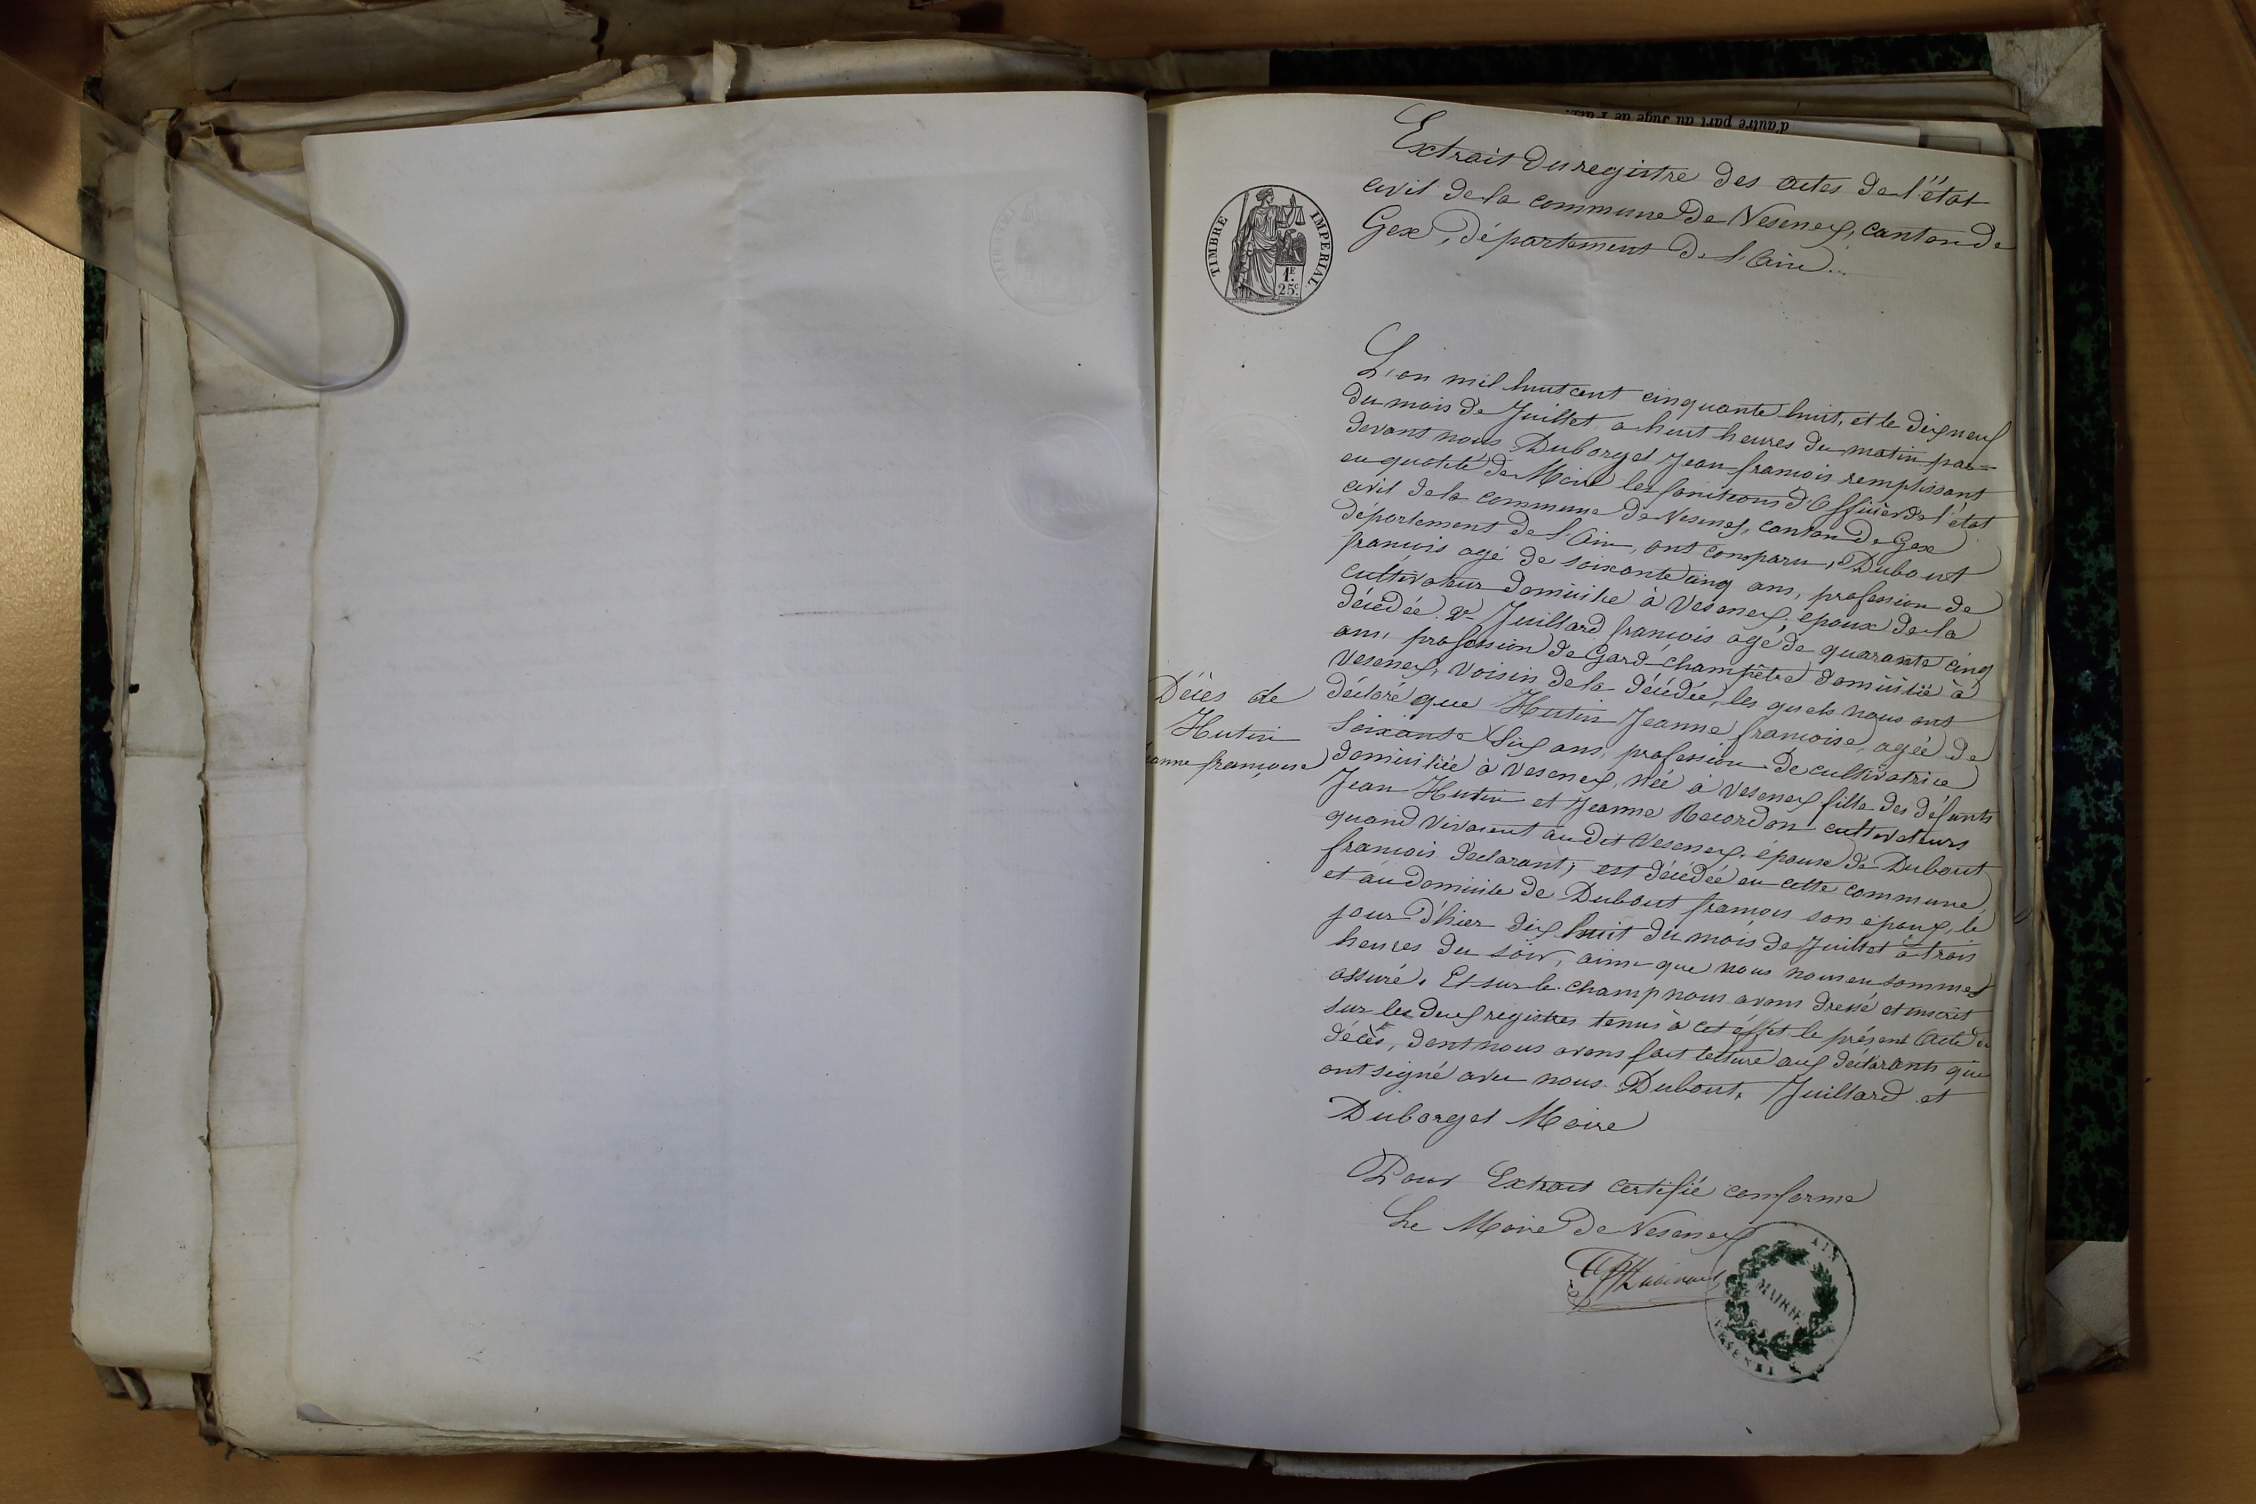 d'autre part au Juge de Paix
Extrait du registre des actes de l'état
civil de la commune de Vesenex, canton de
Gex, département de l'Ain.
TIMBRE IMPERIAL
1F
25c
L'an mil huit cent cinquante huit, et le dix neuf
du mois de Juillet a huit heures du matin par=
devant nous Duborget Jean françois remplissant
en qualité de Maire les fonctions d'Officier de l'état
civil de la commune de Vesenex, canton de Gex
département de l'Ain, ont comparu, Dubout
françois agé de soixante cinq ans, profession de
cultivateur domicilié à Vesenex epoux de la
décédée. 2° Juillard françois agé de quarante cinq
ans, profession de Gard champêtre domicilié à
Vesenex, Voisin de la décédée, les quels nous ont
déclaré que Hutin Jeanne françoise, agée de
Soixante Six ans, profession de cultivatrice
domiciliée à Vesenex, née à Vesenex fille des défunts
Jean Hutin et Jeanne Recordon cultivateurs
quand vivaient au dit Vesenex, épouse de Dubout
françois declarant, est décédée en cette commune,
et au domicile de Dubout françois son époux, le
jour d'hier dix huit du mois de Juillet à trois
heures du soir, ainsi que nous nous en sommes
assuré. Et sur le champ nous avons dressé et inscrit
sur les deux registres tenus à cet éffet le présent Acte de
décès, dont nous avons fait lecture aux déclarants qui
ont signé avec nous. Dubout, Juillard et
Duborget Maire
Décès de
Hutin
eanne françoise
Pour Extrait certifié conforme
Le Maire de Vesenex
AIN
MAIRIE
VESENEX